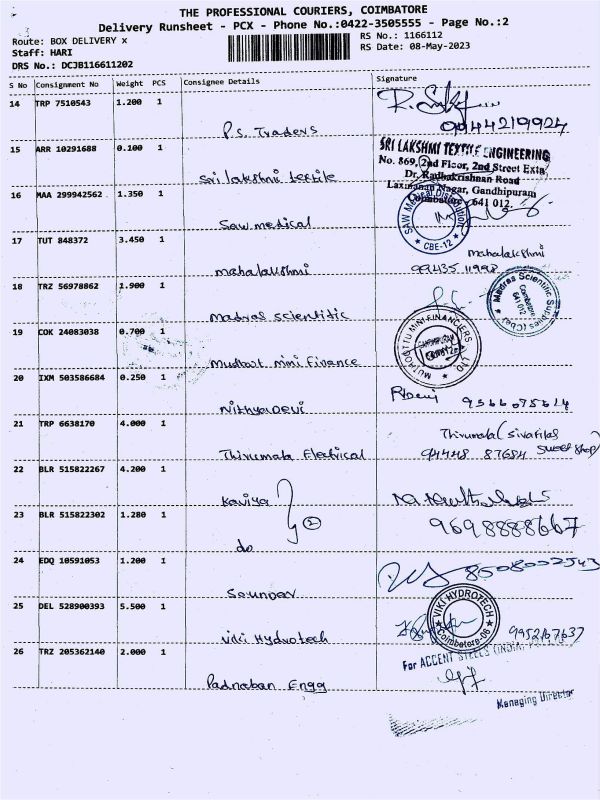 THE PROFESSIONAL COURIERS, COIMBATORE
Delivery Runsheet - PCX - Phone No.:0422-3505555 - Page No.:2
Route: BOX DELIVERY x
Staff: HARI
DRS No.: DCJB116611202
RS No.: 1166112
RS Date: 08-May-2023
S No Consignment No Weight PCS Consignee Details Signature
14 TRP 7510543 1.200 1
P.S. Traders
9944219924
15 ARR 10291688 0.100 1
Sri lakshmi textile
SRI LAKSHMI TEXTILE ENGINEERING
No. 869, 2nd Floor, 2nd Street Extn
Dr. Radhakrishnan Road
Laxmanan Nagar, Gandhipuram
Coimbatore 641 012.
16 MAA 299942562 1.350 1
Saw medical
CBE-12
17 TUT 848372 3.450 1
mahalakshmi
Mahalakshmi
99435 11998
18 TRZ 56978862 1.900 1
madras scientific
Madras Scientific Supplies (Cbe)
Coimbatore
641 012
19 COK 24083038 0.700 1
MUTHOOTTU MINI FINANCIERS LTD.
20 IXM 503586684 0.250 1
Nithya Devi
21 TRP 6638170 4.000 1
Thirumala Electrical
Thirumala
Sweet shop
22 BLR 515822267 4.200 1
Kaviya
2
23 BLR 515822302 1.280 1
do
9698888667
24 EDQ 10591053 1.200 1
8508002543
25 DEL 528900393 5.500 1
Viki Hydrotech
VIKI HYDROTECH
Coimbatore-06
9952167637
26 TRZ 205362140 2.000 1
For ACCENT STEELS (INDIA)
Managing Director